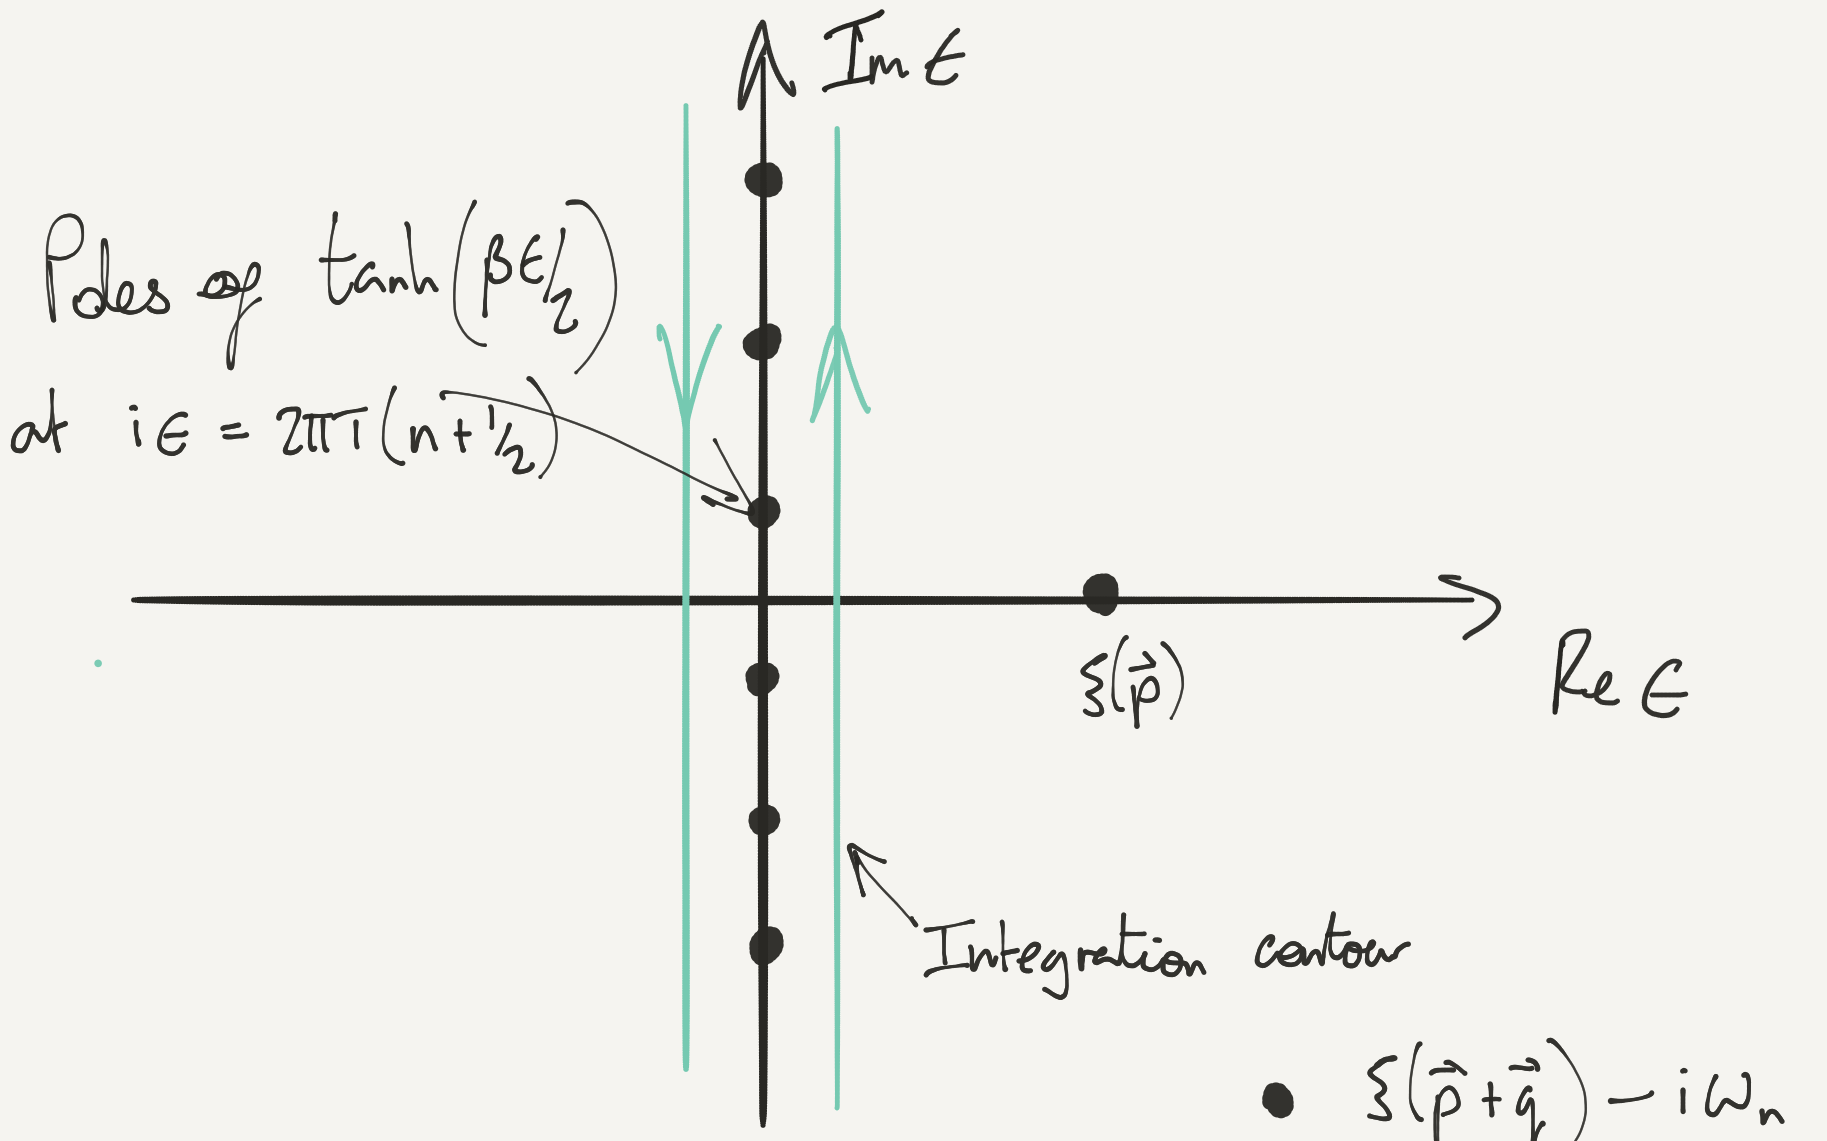 Im ϵ
Poles of tanh(βϵ/2)
at iϵ = 2πT(n+1/2)
ξ(p⃗)
Re ϵ
Integration contour
ξ(p⃗+q⃗) − iωₙ